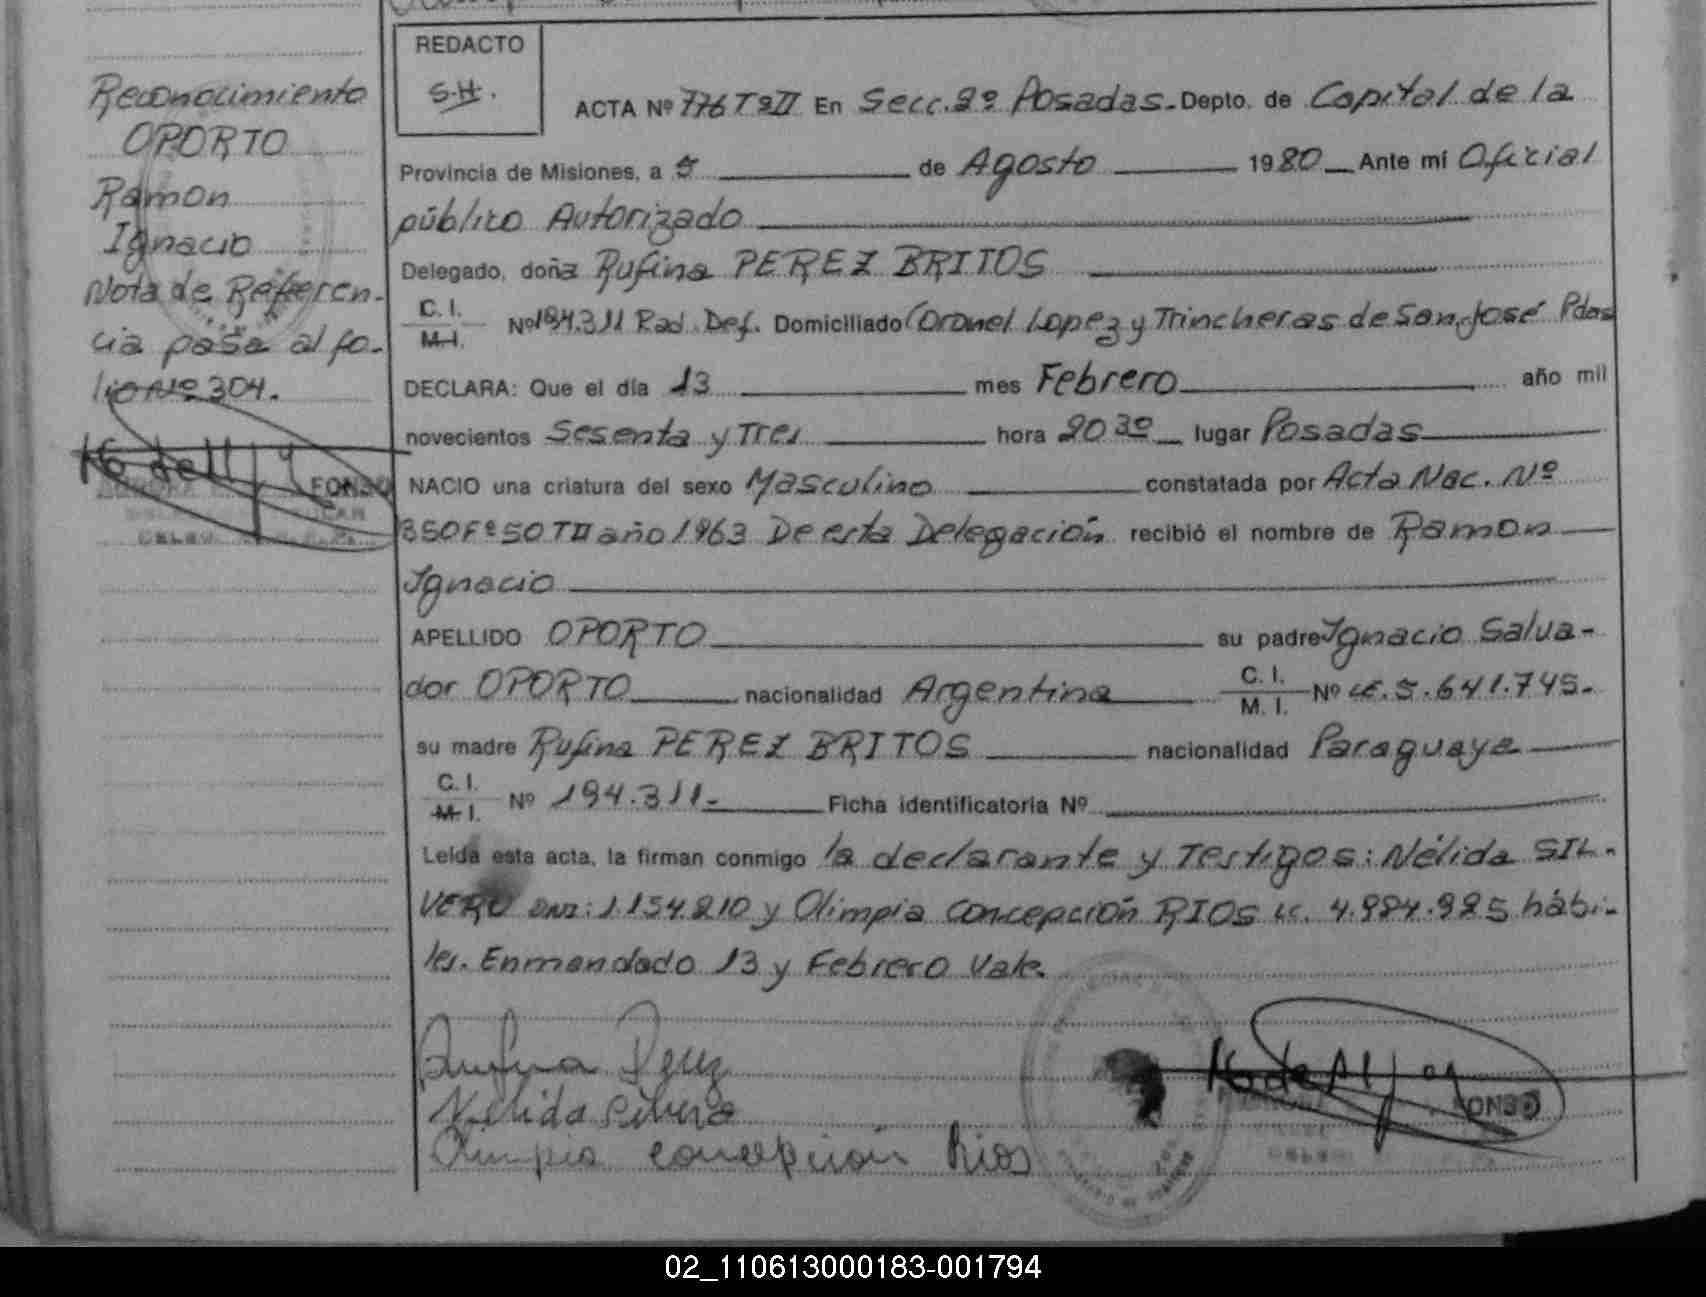 Reconocimiento
OPORTO
Ramon
Ignacio
Nota de Referen-
cia pasa al fo-
lio Nº 304.
FONSO
REDACTO
S.H.
ACTA Nº 776 Tº II En Secc. 2º Posadas. Depto. de Capital de la
Provincia de Misiones, a 5 de Agosto 1980 Ante mi Oficial
público Autorizado
Delegado, doña Rufina PEREZ BRITOS
C. I.
M. I. Nº 194.311 Rad. Def. Domiciliado Coronel Lopez y Trincheras de San José Pdas
DECLARA: Que el día 13 mes Febrero año mil
novecientos Sesenta y Tres hora 20 30 lugar Posadas
NACIO una criatura del sexo Masculino constatada por Acta Nac. Nº
350 Fº 50 T II año 1963 De esta Delegación recibió el nombre de Ramon
Ignacio
APELLIDO OPORTO su padre Ignacio Salva-
dor OPORTO nacionalidad Argentina C. I.
M. I. Nº LE. 5.641.745.
su madre Rufina PEREZ BRITOS nacionalidad Paraguaya
C. I.
M. I. Nº 194.311.- Ficha identificatoria Nº
Leída esta acta, la firman conmigo la declarante y Testigos: Nélida SIL-
VERO DNI: 1.154.210 y Olimpia Concepción RIOS LC. 4.984.985 hábi-
les. Enmendado 13 y Febrero Vale.
Rufina Perez
Nelida Silvero
Olimpia concepcion Rios
FONSO
02_110613000183-001794